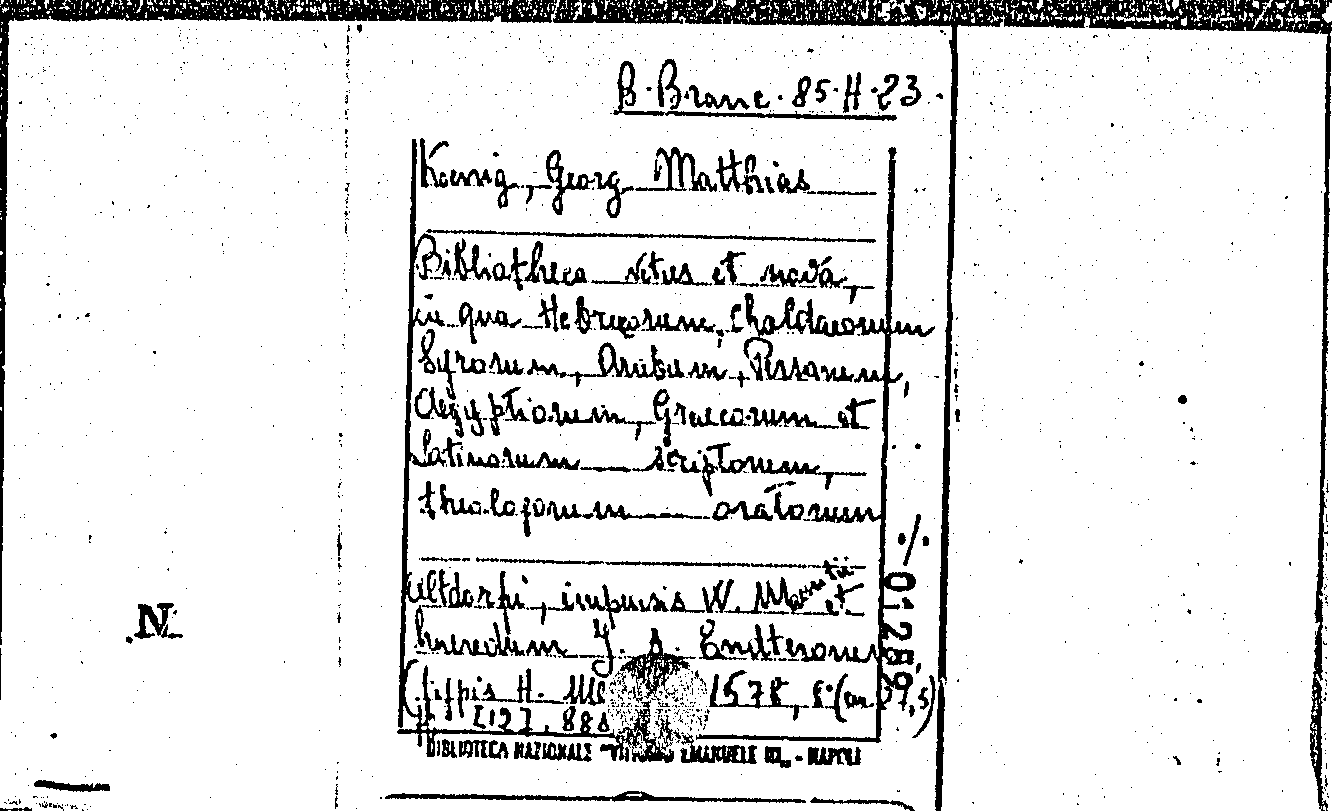 B. Branc. 85. H. 23.
Koenig, Georg Matthias
Bibliotheca vetus et nova,
in qua Hebraeorum, Chaldaeorum
Syrorum, Arabum, Persarum,
Aegyptiorum, Graecorum et
Latinorum scriptorum,
theologorum oratorum
./.
Altdorfi, impensis W. Mauritii et
haeredum J. A. Endterorum
(typis H. Me 1578, 2° (cm 37,5)
[12], 888
01289
BIBLIOTECA NAZIONALE "VITTORIO EMANUELE III" - NAPOLI
N.